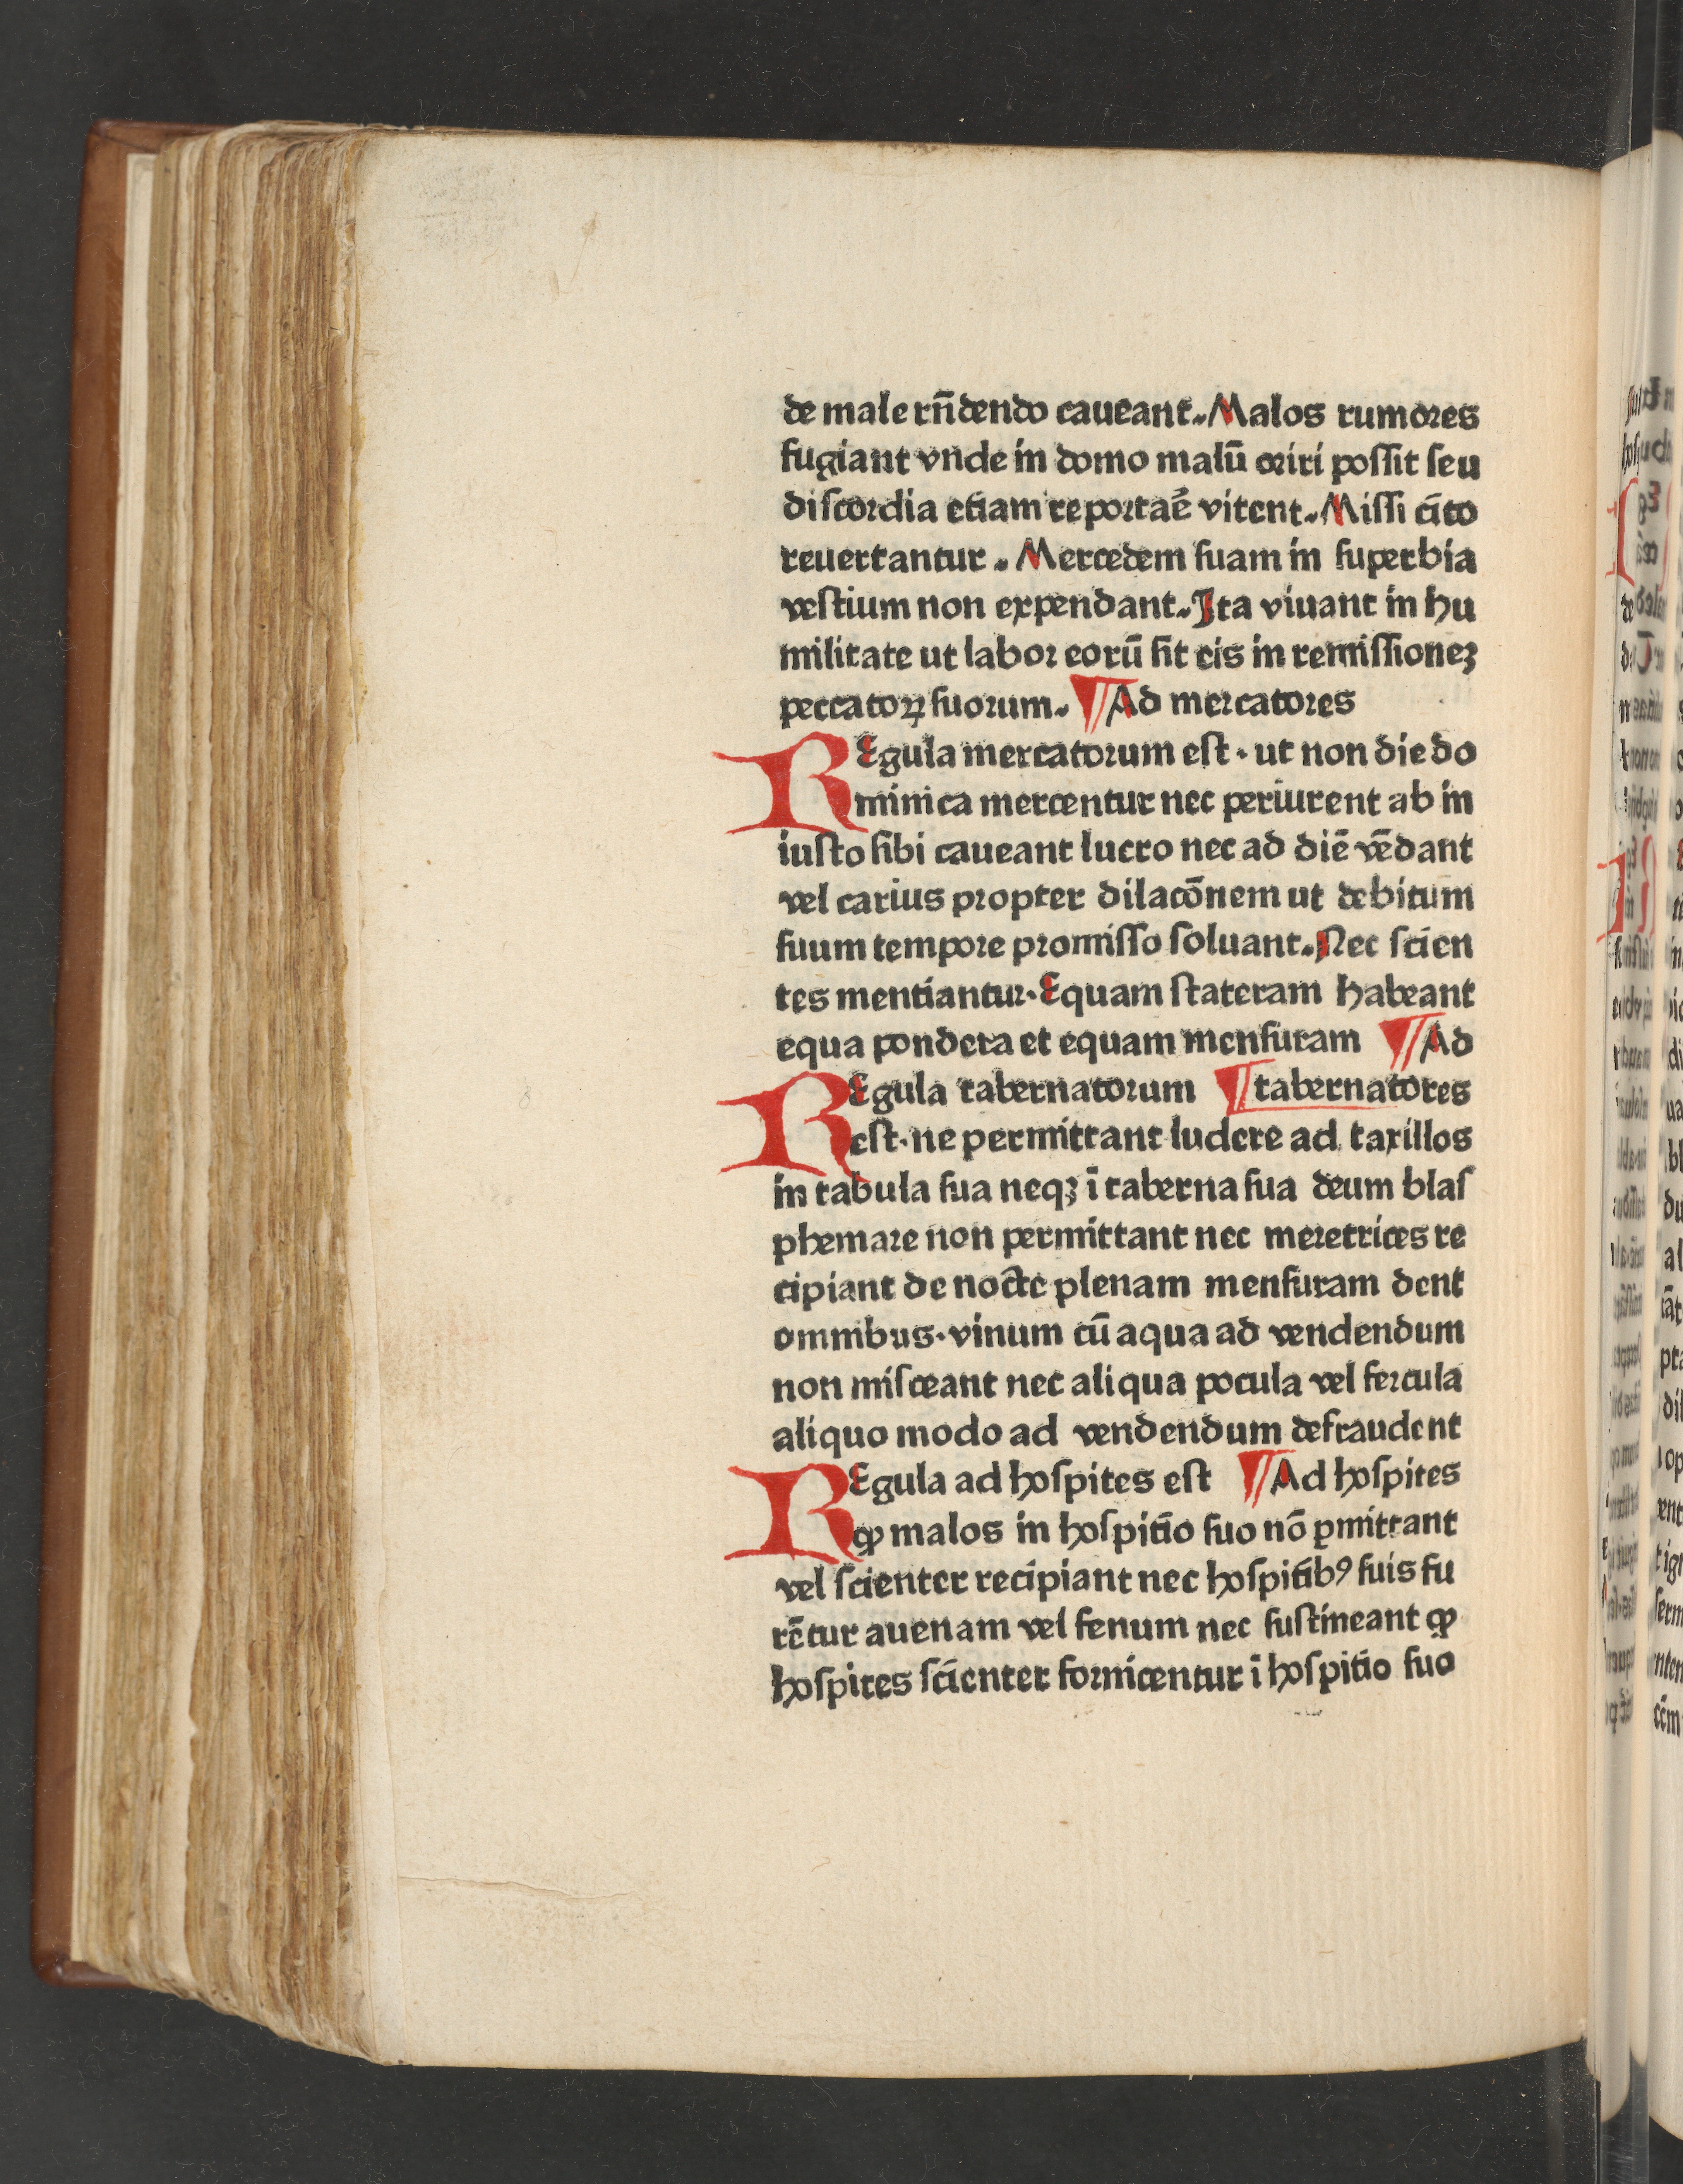 de male rñdendo caueant. Malos rumores
fugiant vnde in domo malū oriri poſſit ſeu
diſcordia etiam reportaē vitent. Miſſi cito
reuertantur. Mercedem ſuam in ſuperbia
veſtium non expendant. Ita viuant in hu
militate ut labor eorū ſit eis in remiſſionez
peccatoꝝ ſuorum. ¶ Ad mercatores
REgula mercatorum eſt · ut non die do
minica mercentur nec periurent ab in
iuſto ſibi caueant lucro nec ad diē vēdant
vel carius propter dilacōnem ut debitum
ſuum tempore promiſſo ſoluant. Nec ſcien
tes mentiantur · Equam ſtateram habeant
equa pondera et equam menſuram ¶ Ad
REgula tabernatorum ¶ tabernatores
eſt · ne permittant ludere ad taxillos
in tabula ſua neqꝫ ī taberna ſua deum blaſ
phemare non permittant nec meretrices re
cipiant de nocte plenam menſuram dent
omnibus · vinum cū aqua ad vendendum
non miſceant nec aliqua pocula vel fercula
aliquo modo ad vendendum defraudent
REgula ad hoſpites eſt ¶ Ad hoſpites
ꝙ malos in hoſpitio ſuo nō ꝑmittant
vel ſcienter recipiant nec hoſpitibꝰ ſuis fu
rētur auenam vel fenum nec ſuſtineant ꝙ
hoſpites ſcienter fornicentur ī hoſpitio ſuo